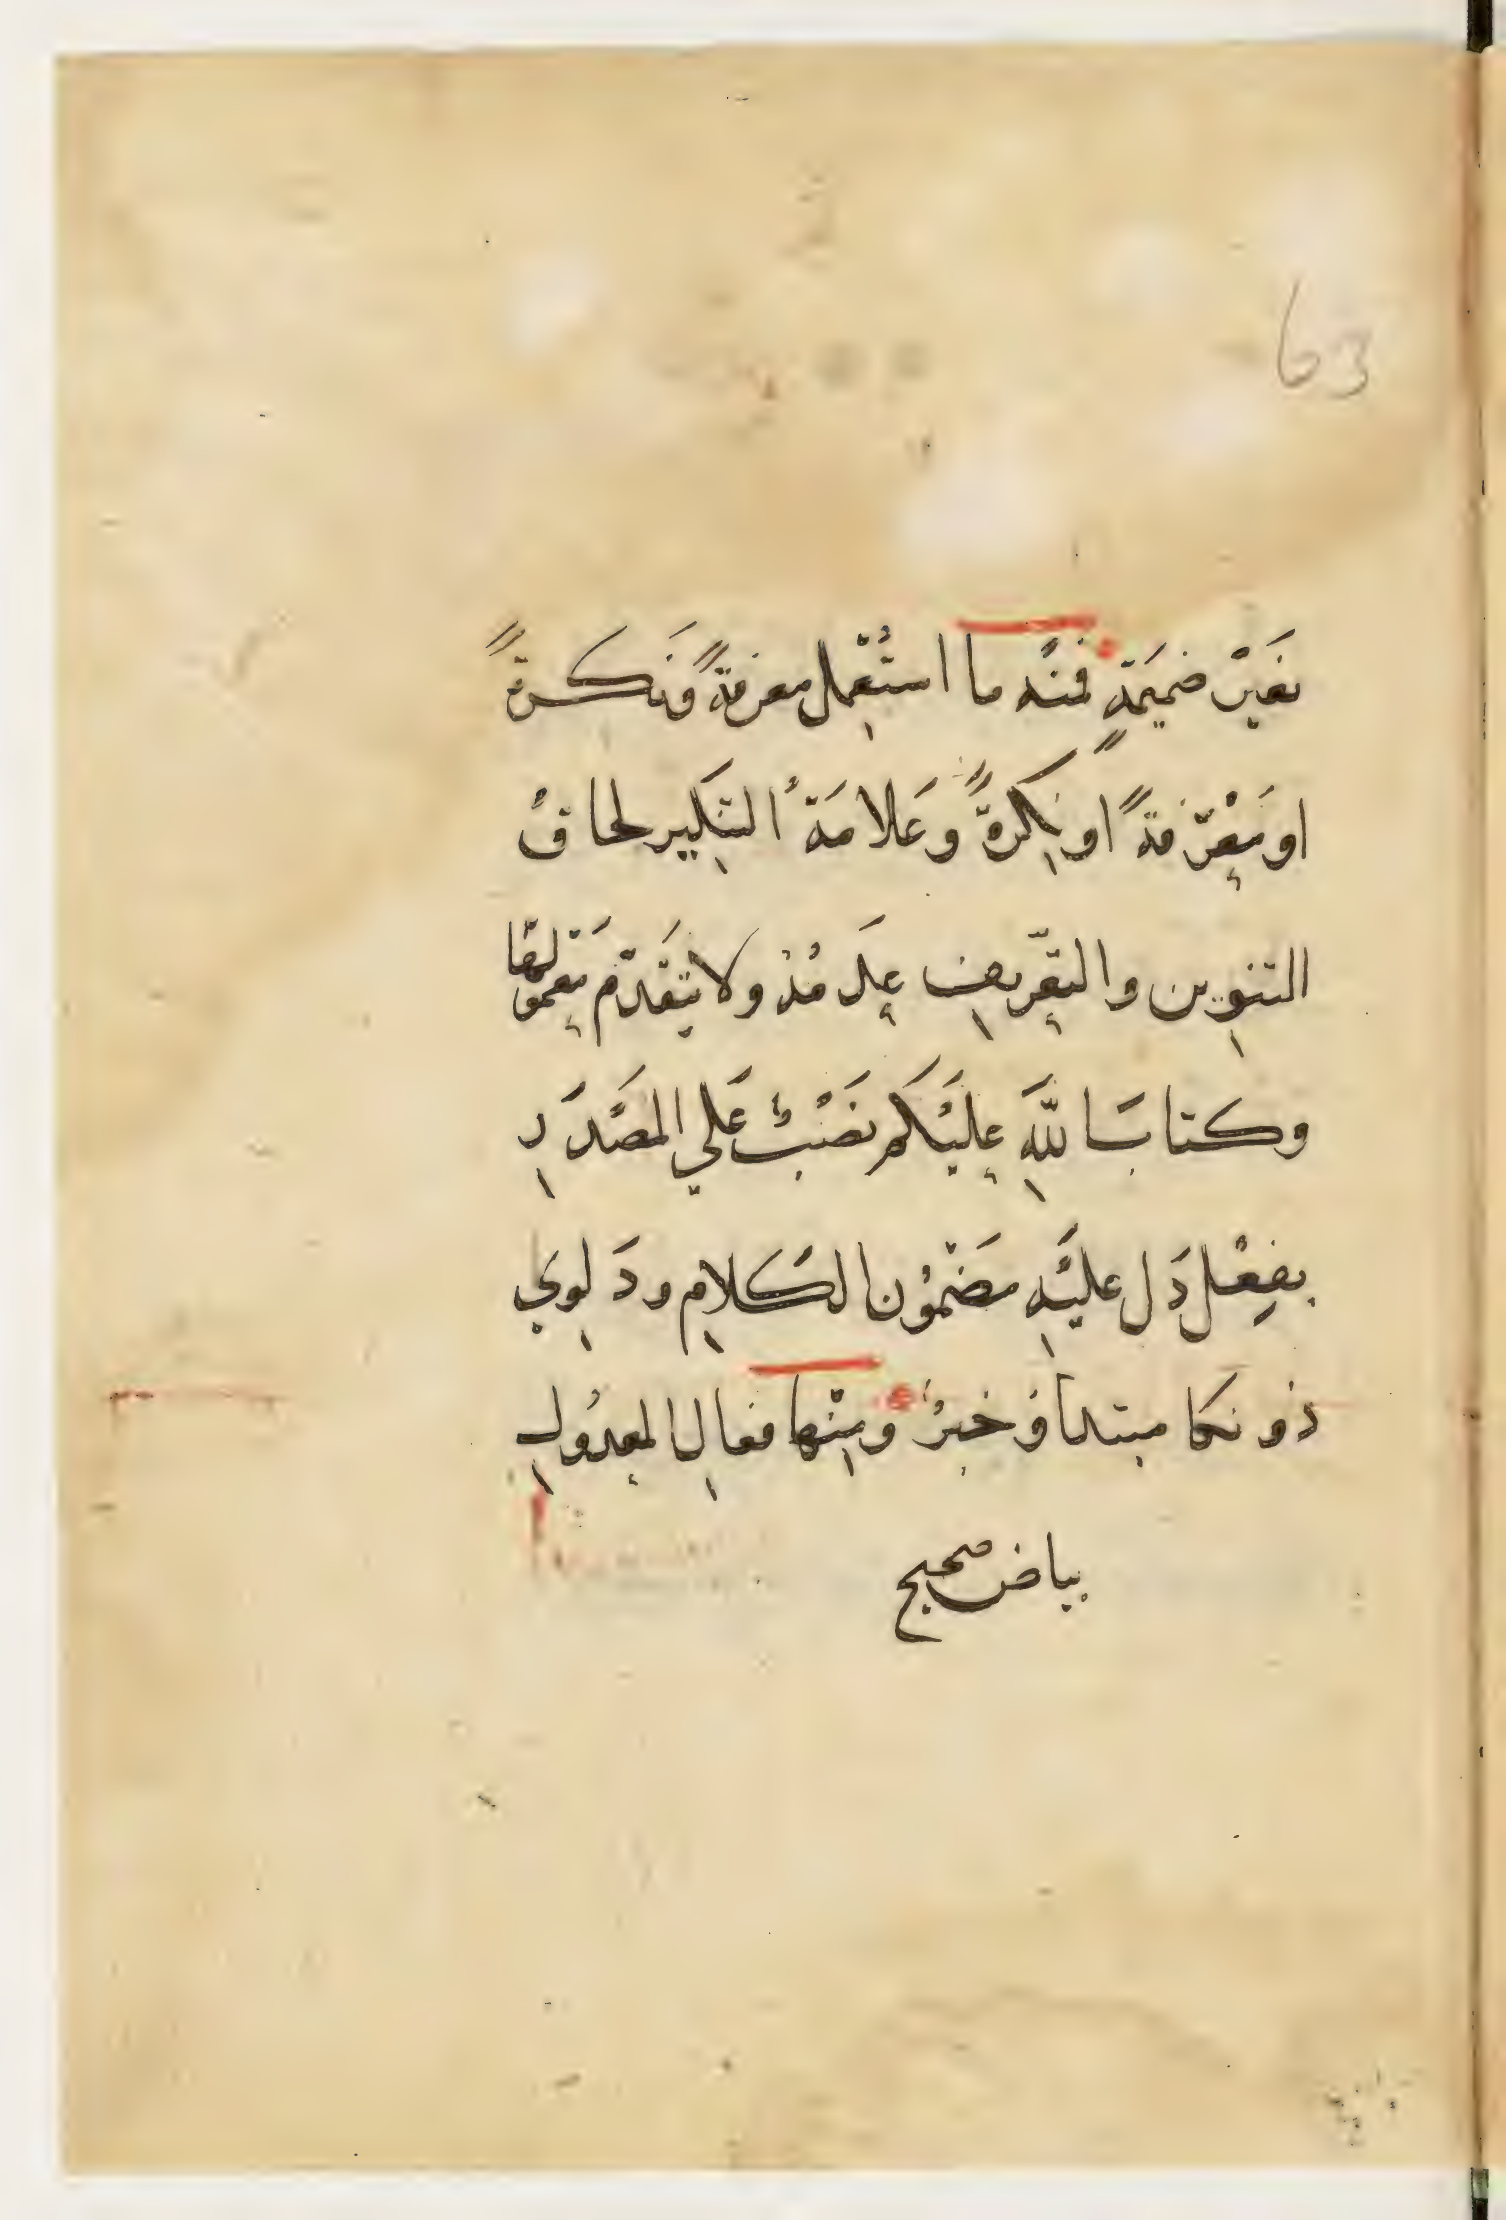 63
بغَيْر ضميمَةٍ فمنْه ما استُعْمِل معرفةً ونَكرةً
او مَعْرفةً او نكِرةً وعَلامَةُ التنكِير لحاقُ
التنوِين والتعْرِيفِ عَدَمُهُ ولا يتَقدّم مَعْمولها
وكتابَ اللهِ عليْكم نَصْبٌ عَلي المصْدَرِ
بفِعْل دَل عليْهِ مضْمُون الكَلامِ ودَلوِي
دُونكما مبتدأ وخبرُ ومِنْها فعالِ المعدُولِ
بياض صحيح